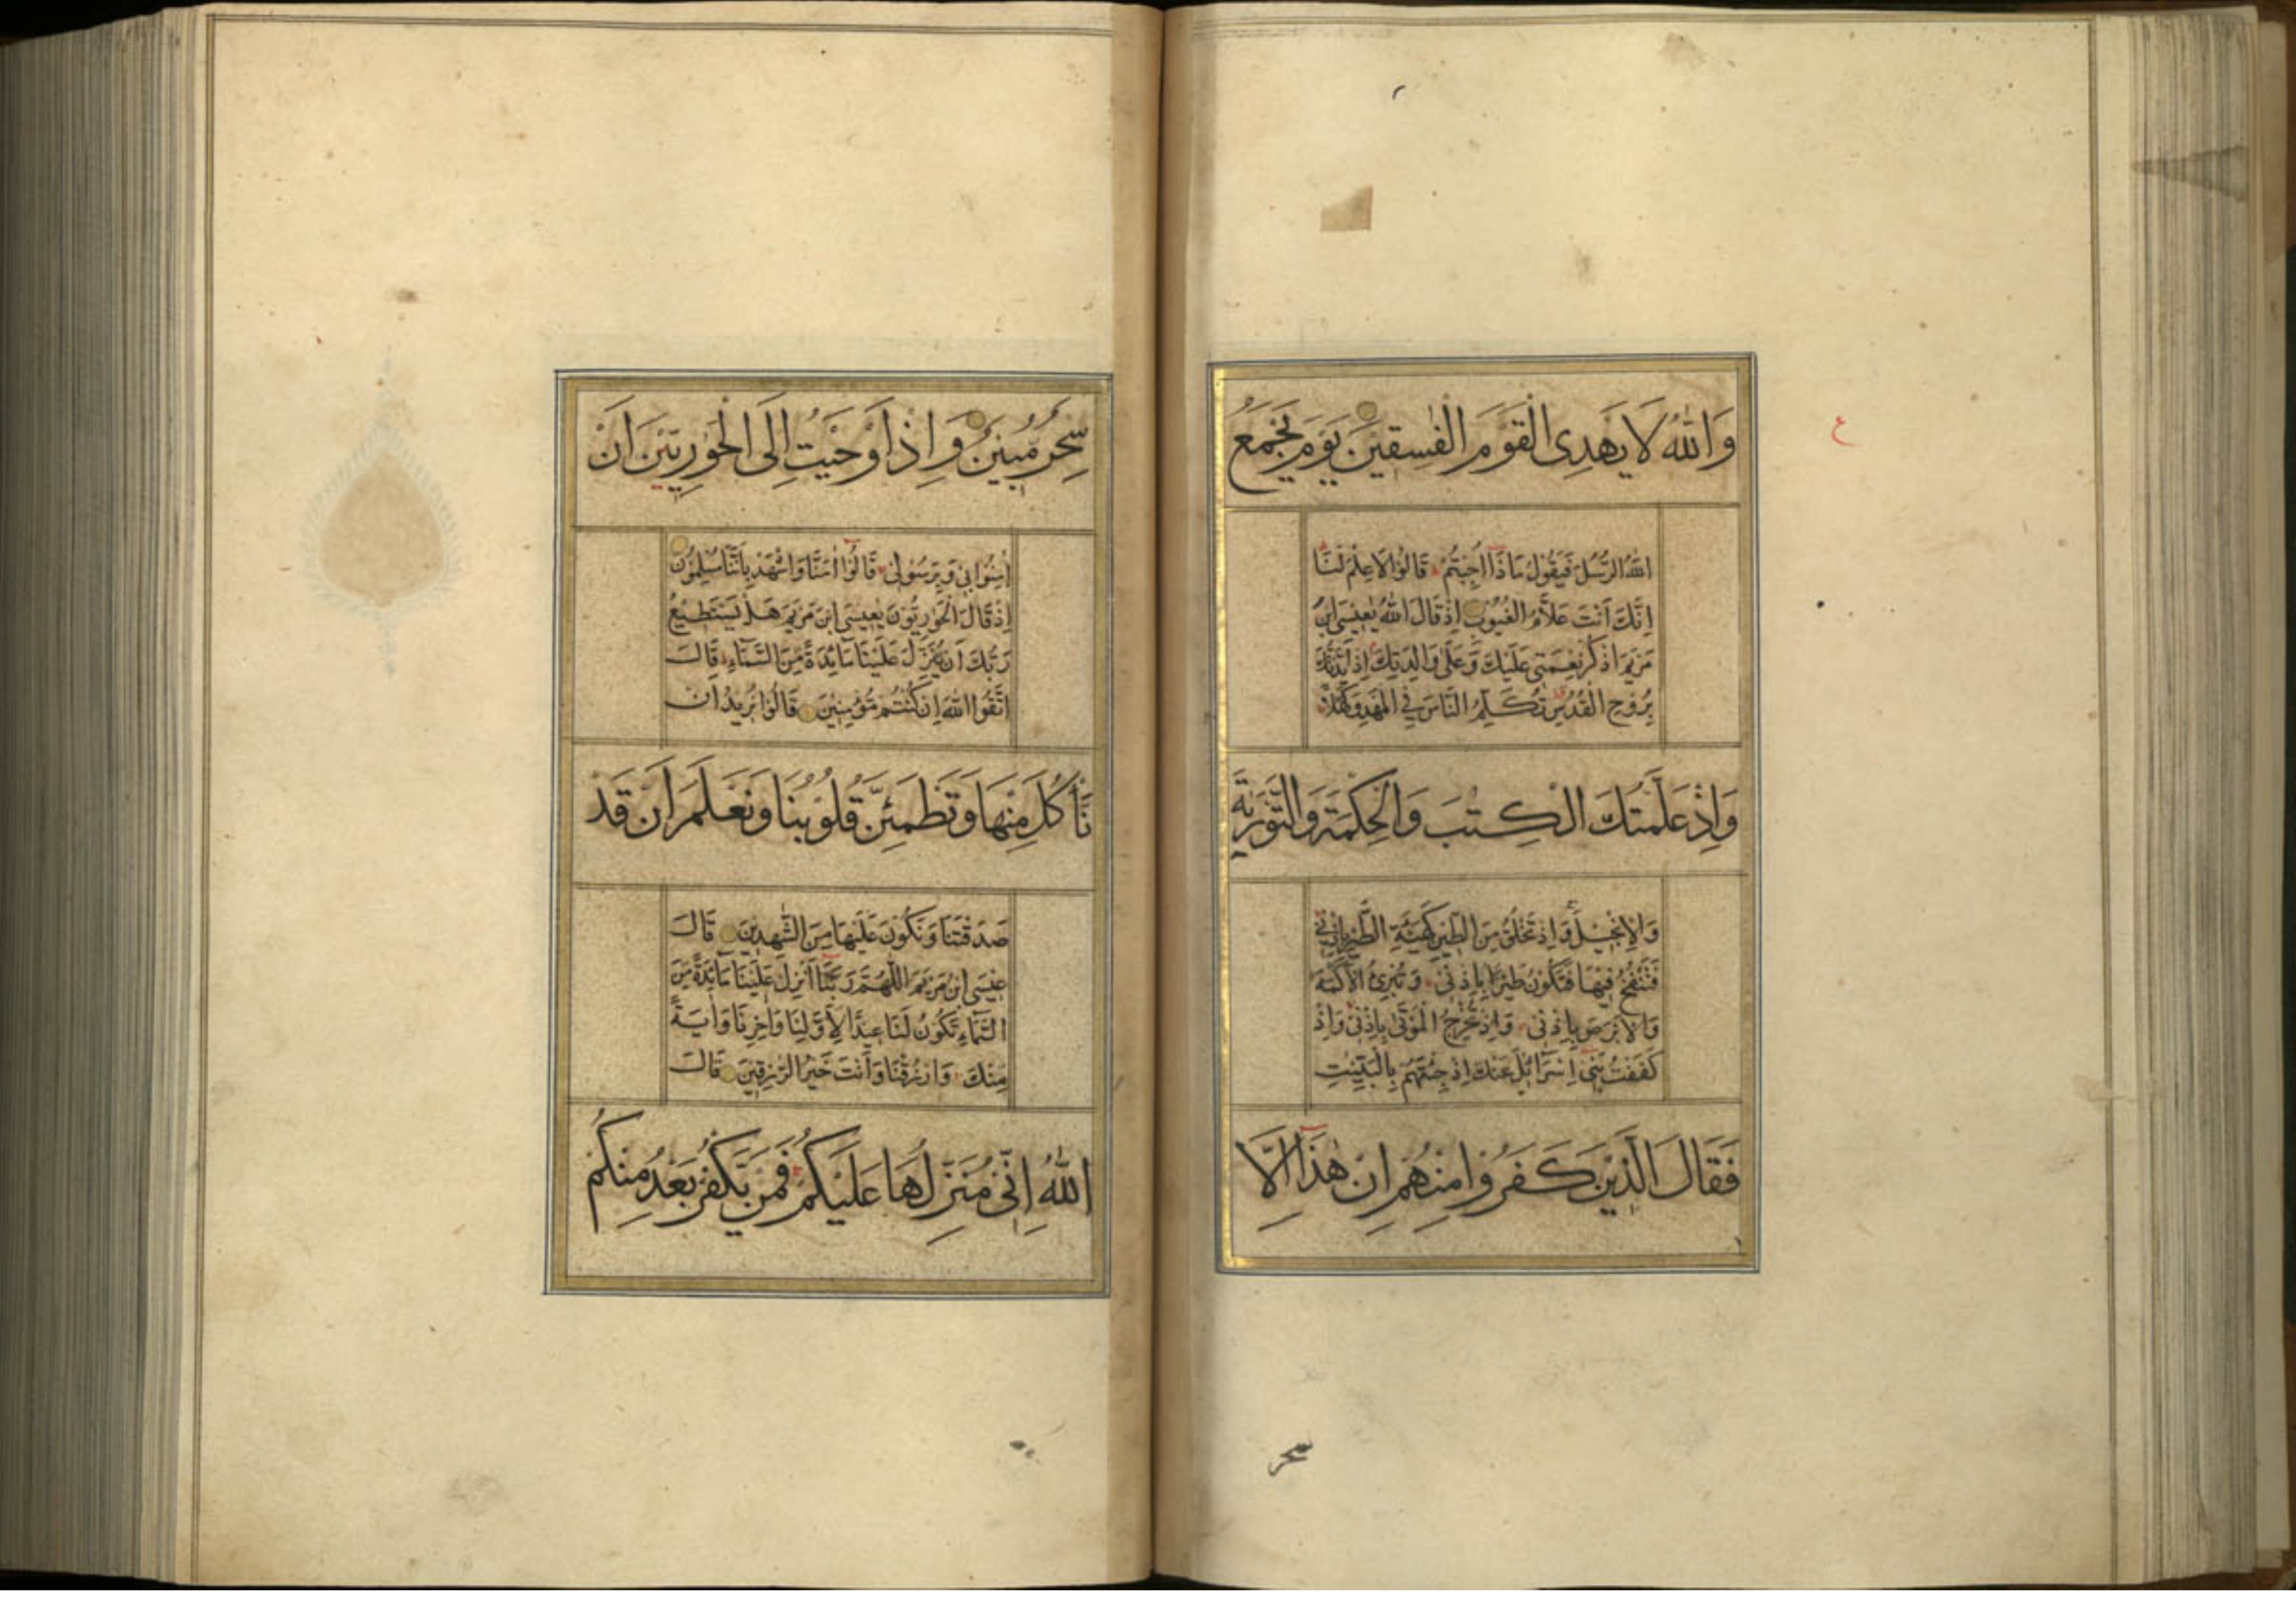 ع
وَاللّٰهُ لَا يَهْدِى الْقَوْمَ الْفٰسِقِيْنَ يَوْمَ يَجْمَعُ
اللّٰهُ الرُّسُلَ فَيَقُوْلُ مَاذَا اُجِبْتُمْ قَالُوْا لَا عِلْمَ لَنَا
اِنَّكَ اَنْتَ عَلَّامُ الْغُيُوْبِ اِذْ قَالَ اللّٰهُ يٰعِيْسَى ابْنَ
مَرْيَمَ اذْكُرْ نِعْمَتِى عَلَيْكَ وَعَلٰى وَالِدَتِكَ اِذْ اَيَّدْتُكَ
بِرُوْحِ الْقُدُسِ تُكَلِّمُ النَّاسَ فِى الْمَهْدِ وَكَهْلًا
وَاِذْ عَلَّمْتُكَ الْكِتٰبَ وَالْحِكْمَةَ وَالتَّوْرٰىةَ
وَالْاِنْجِيْلَ وَاِذْ تَخْلُقُ مِنَ الطِّيْنِ كَهَيْئَةِ الطَّيْرِ بِاِذْنِى
فَتَنْفُخُ فِيْهَا فَتَكُوْنُ طَيْرًا بِاِذْنِى وَتُبْرِئُ الْاَكْمَهَ
وَالْاَبْرَصَ بِاِذْنِى وَاِذْ تُخْرِجُ الْمَوْتٰى بِاِذْنِى وَاِذْ
كَفَفْتُ بَنِى اِسْرَآئِلَ عَنْكَ اِذْ جِئْتَهُمْ بِالْبَيِّنٰتِ
فَقَالَ الَّذِيْنَ كَفَرُوْا مِنْهُمْ اِنْ هٰذَا اِلَّا
سحر
سِحْرٌ مُّبِيْنٌ وَاِذْ اَوْحَيْتُ اِلَى الْحَوَارِيّٖنَ اَنْ
اٰمِنُوْا بِى وَبِرَسُوْلِى قَالُوْا اٰمَنَّا وَاشْهَدْ بِاَنَّنَا مُسْلِمُوْنَ
اِذْ قَالَ الْحَوَارِيُّوْنَ يٰعِيْسَى ابْنَ مَرْيَمَ هَلْ يَسْتَطِيْعُ
رَبُّكَ اَنْ يُنَزِّلَ عَلَيْنَا مَآئِدَةً مِّنَ السَّمَآءِ قَالَ
اتَّقُوا اللّٰهَ اِنْ كُنْتُمْ مُّؤْمِنِيْنَ قَالُوْا نُرِيْدُ اَنْ
نَأْكُلَ مِنْهَا وَتَطْمَئِنَّ قُلُوْبُنَا وَنَعْلَمَ اَنْ قَدْ
صَدَقْتَنَا وَنَكُوْنَ عَلَيْهَا مِنَ الشّٰهِدِيْنَ قَالَ
عِيْسَى ابْنُ مَرْيَمَ اللّٰهُمَّ رَبَّنَا اَنْزِلْ عَلَيْنَا مَآئِدَةً مِّنَ
السَّمَآءِ تَكُوْنُ لَنَا عِيْدًا لِاَوَّلِنَا وَاٰخِرِنَا وَاٰيَةً
مِنْكَ وَارْزُقْنَا وَاَنْتَ خَيْرُ الرّٰزِقِيْنَ قَالَ
اللّٰهُ اِنِّى مُنَزِّلُهَا عَلَيْكُمْ فَمَنْ يَّكْفُرْ بَعْدُ مِنْكُمْ